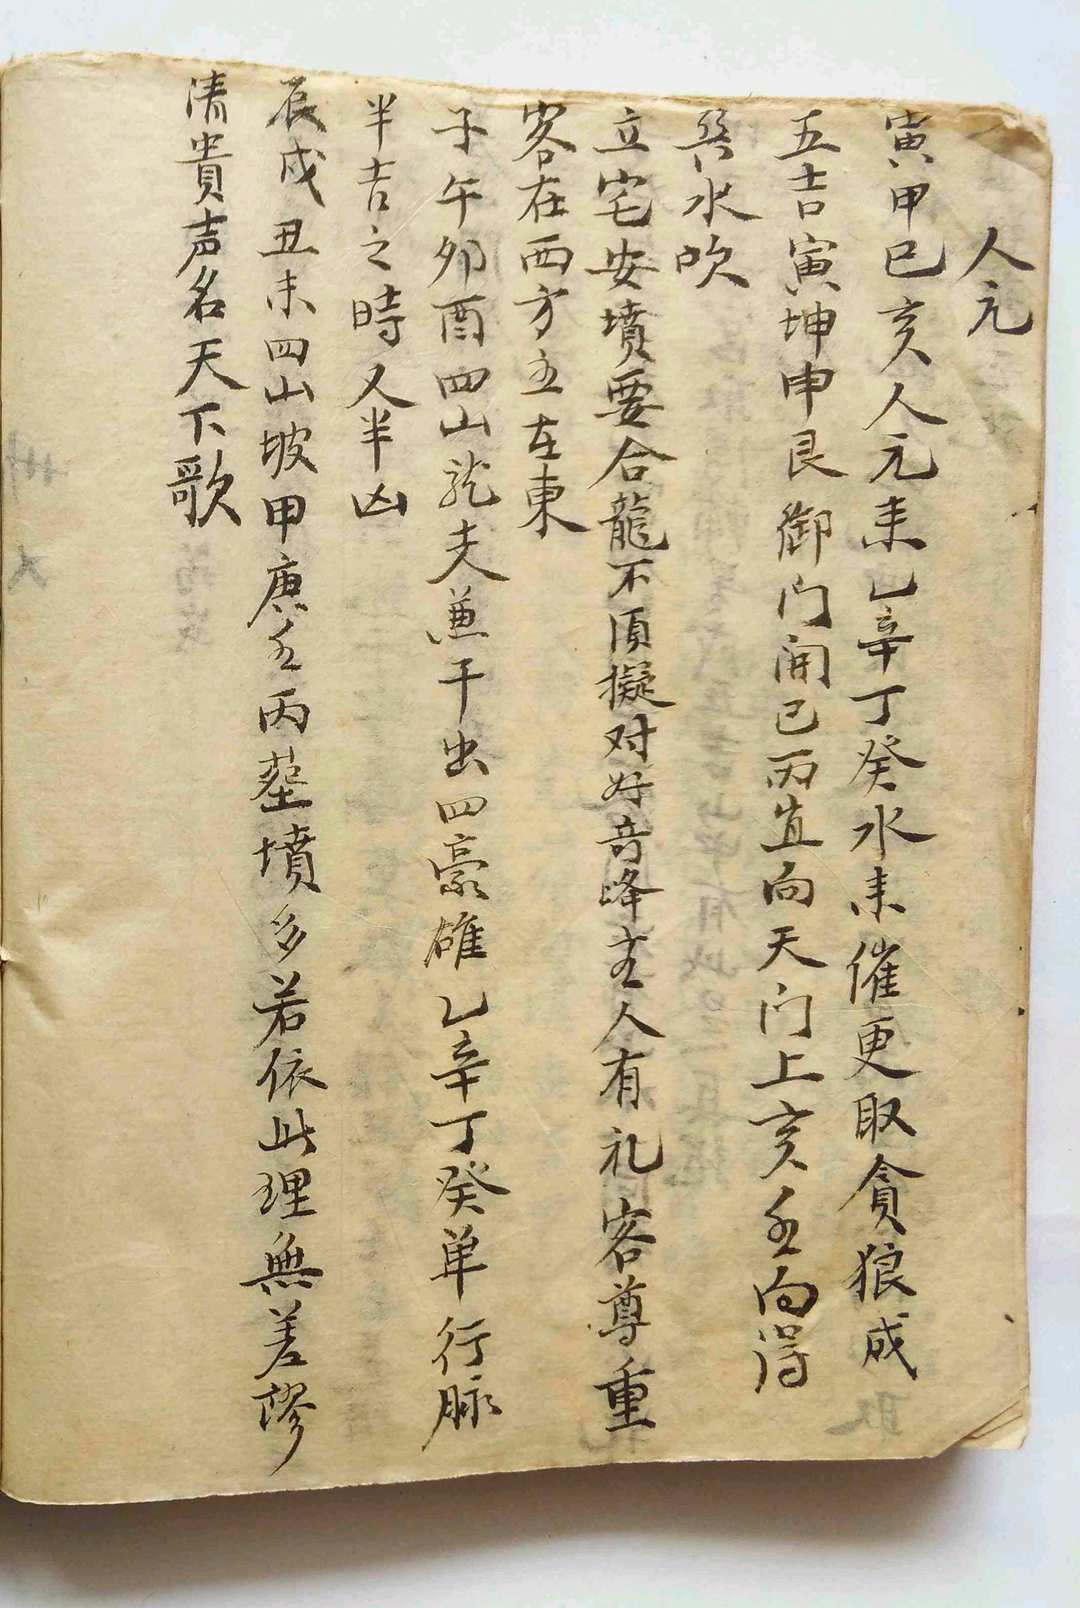 人元
寅甲巳亥人元耒乙辛丁癸水耒催更取貪狼成
五吉寅坤申艮御门開巳丙宜向天门上亥壬向得
巽水吹
立宅安墳要合龍不須擬对好竒峰主人有礼客尊重
客在西方主在東
子午夘酉四山龙夫兼干出四豪雄乙辛丁癸单行脉
半吉之時又半凶
辰戌丑未四山坡甲庚壬丙塟墳多若依此理無差謬
清貴声名天下歌